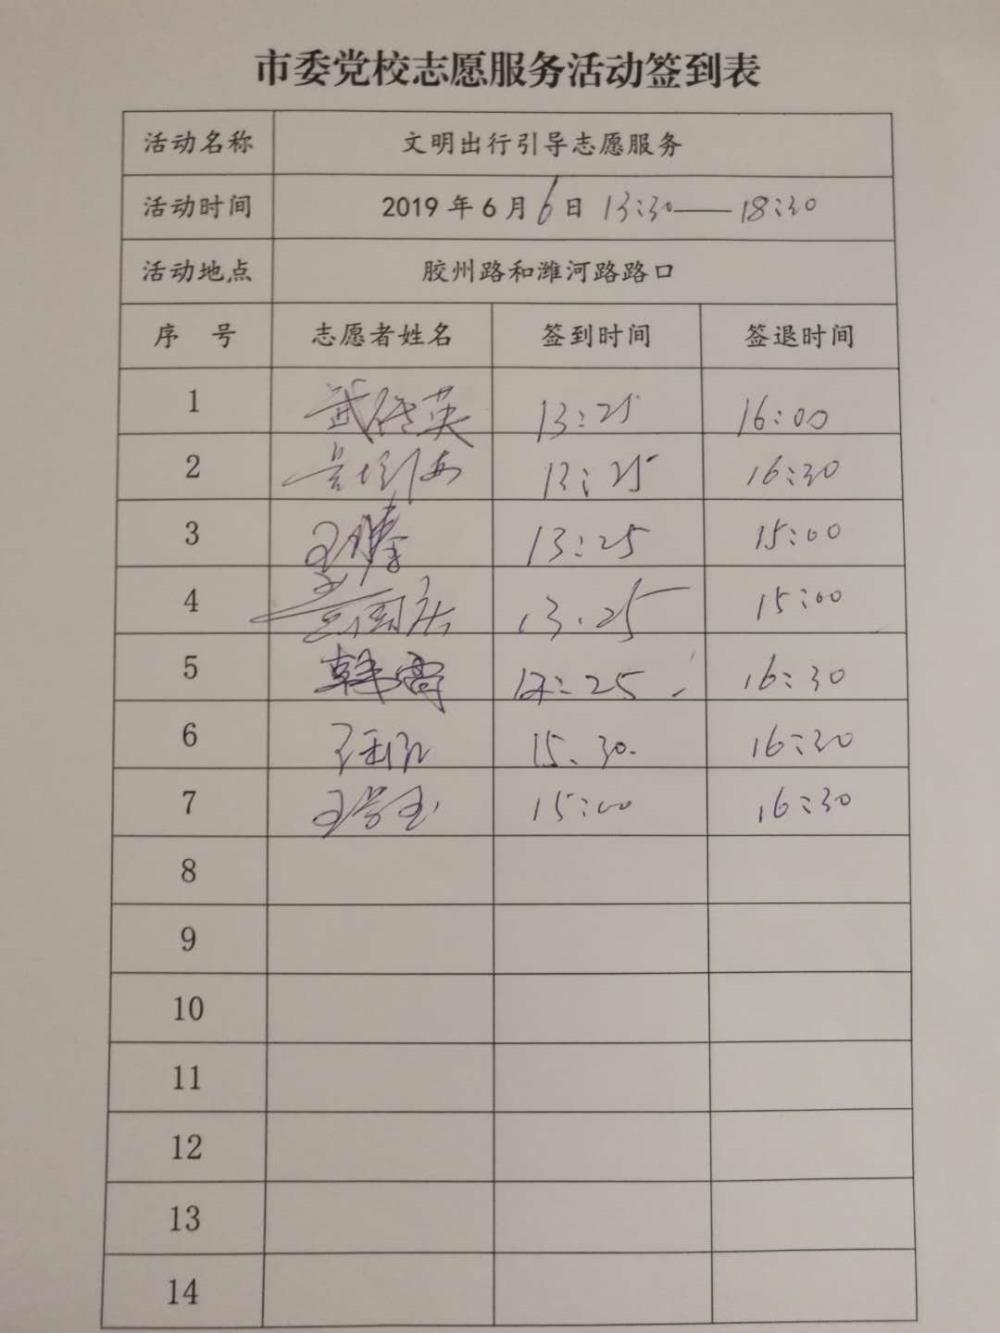 市委党校志愿服务活动签到表
活动名称 文明出行引导志愿服务
活动时间 2019年6月6日 13:30——18:30
活动地点 胶州路和潍河路路口
序 号 志愿者姓名 签到时间 签退时间
1 武传英 13:25 16:00
2 13:25 16:30
3 13:25 15:00
4 13.25 15:00
5 韩霄 12:25 16:30
6 15.30. 16:30
7 王学玉 15:00 16:30
8
9
10
11
12
13
14